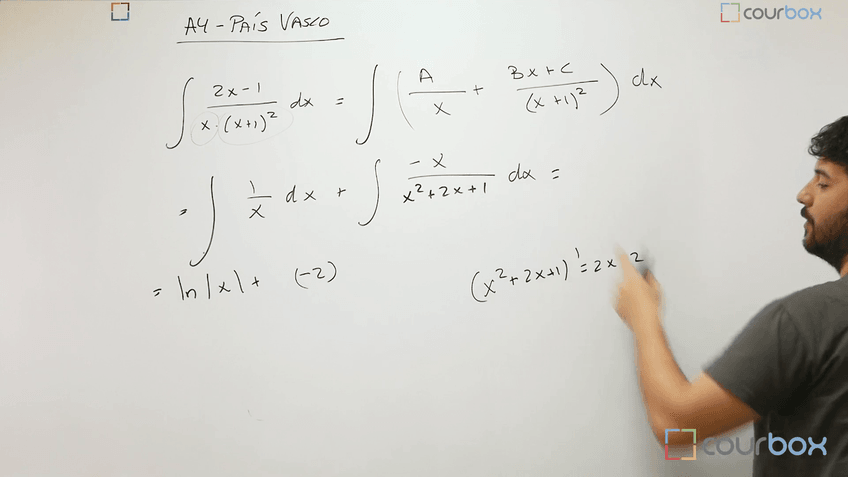 courbox
A4 - PAÍS VASCO
∫ 2x-1 / x·(x+1)² dx = ∫ ( A / x + Bx+C / (x+1)² ) dx
= ∫ 1/x dx + ∫ -x / x²+2x+1 dx =
= ln|x| + (-2)
(x²+2x+1)' = 2x 2
courbox